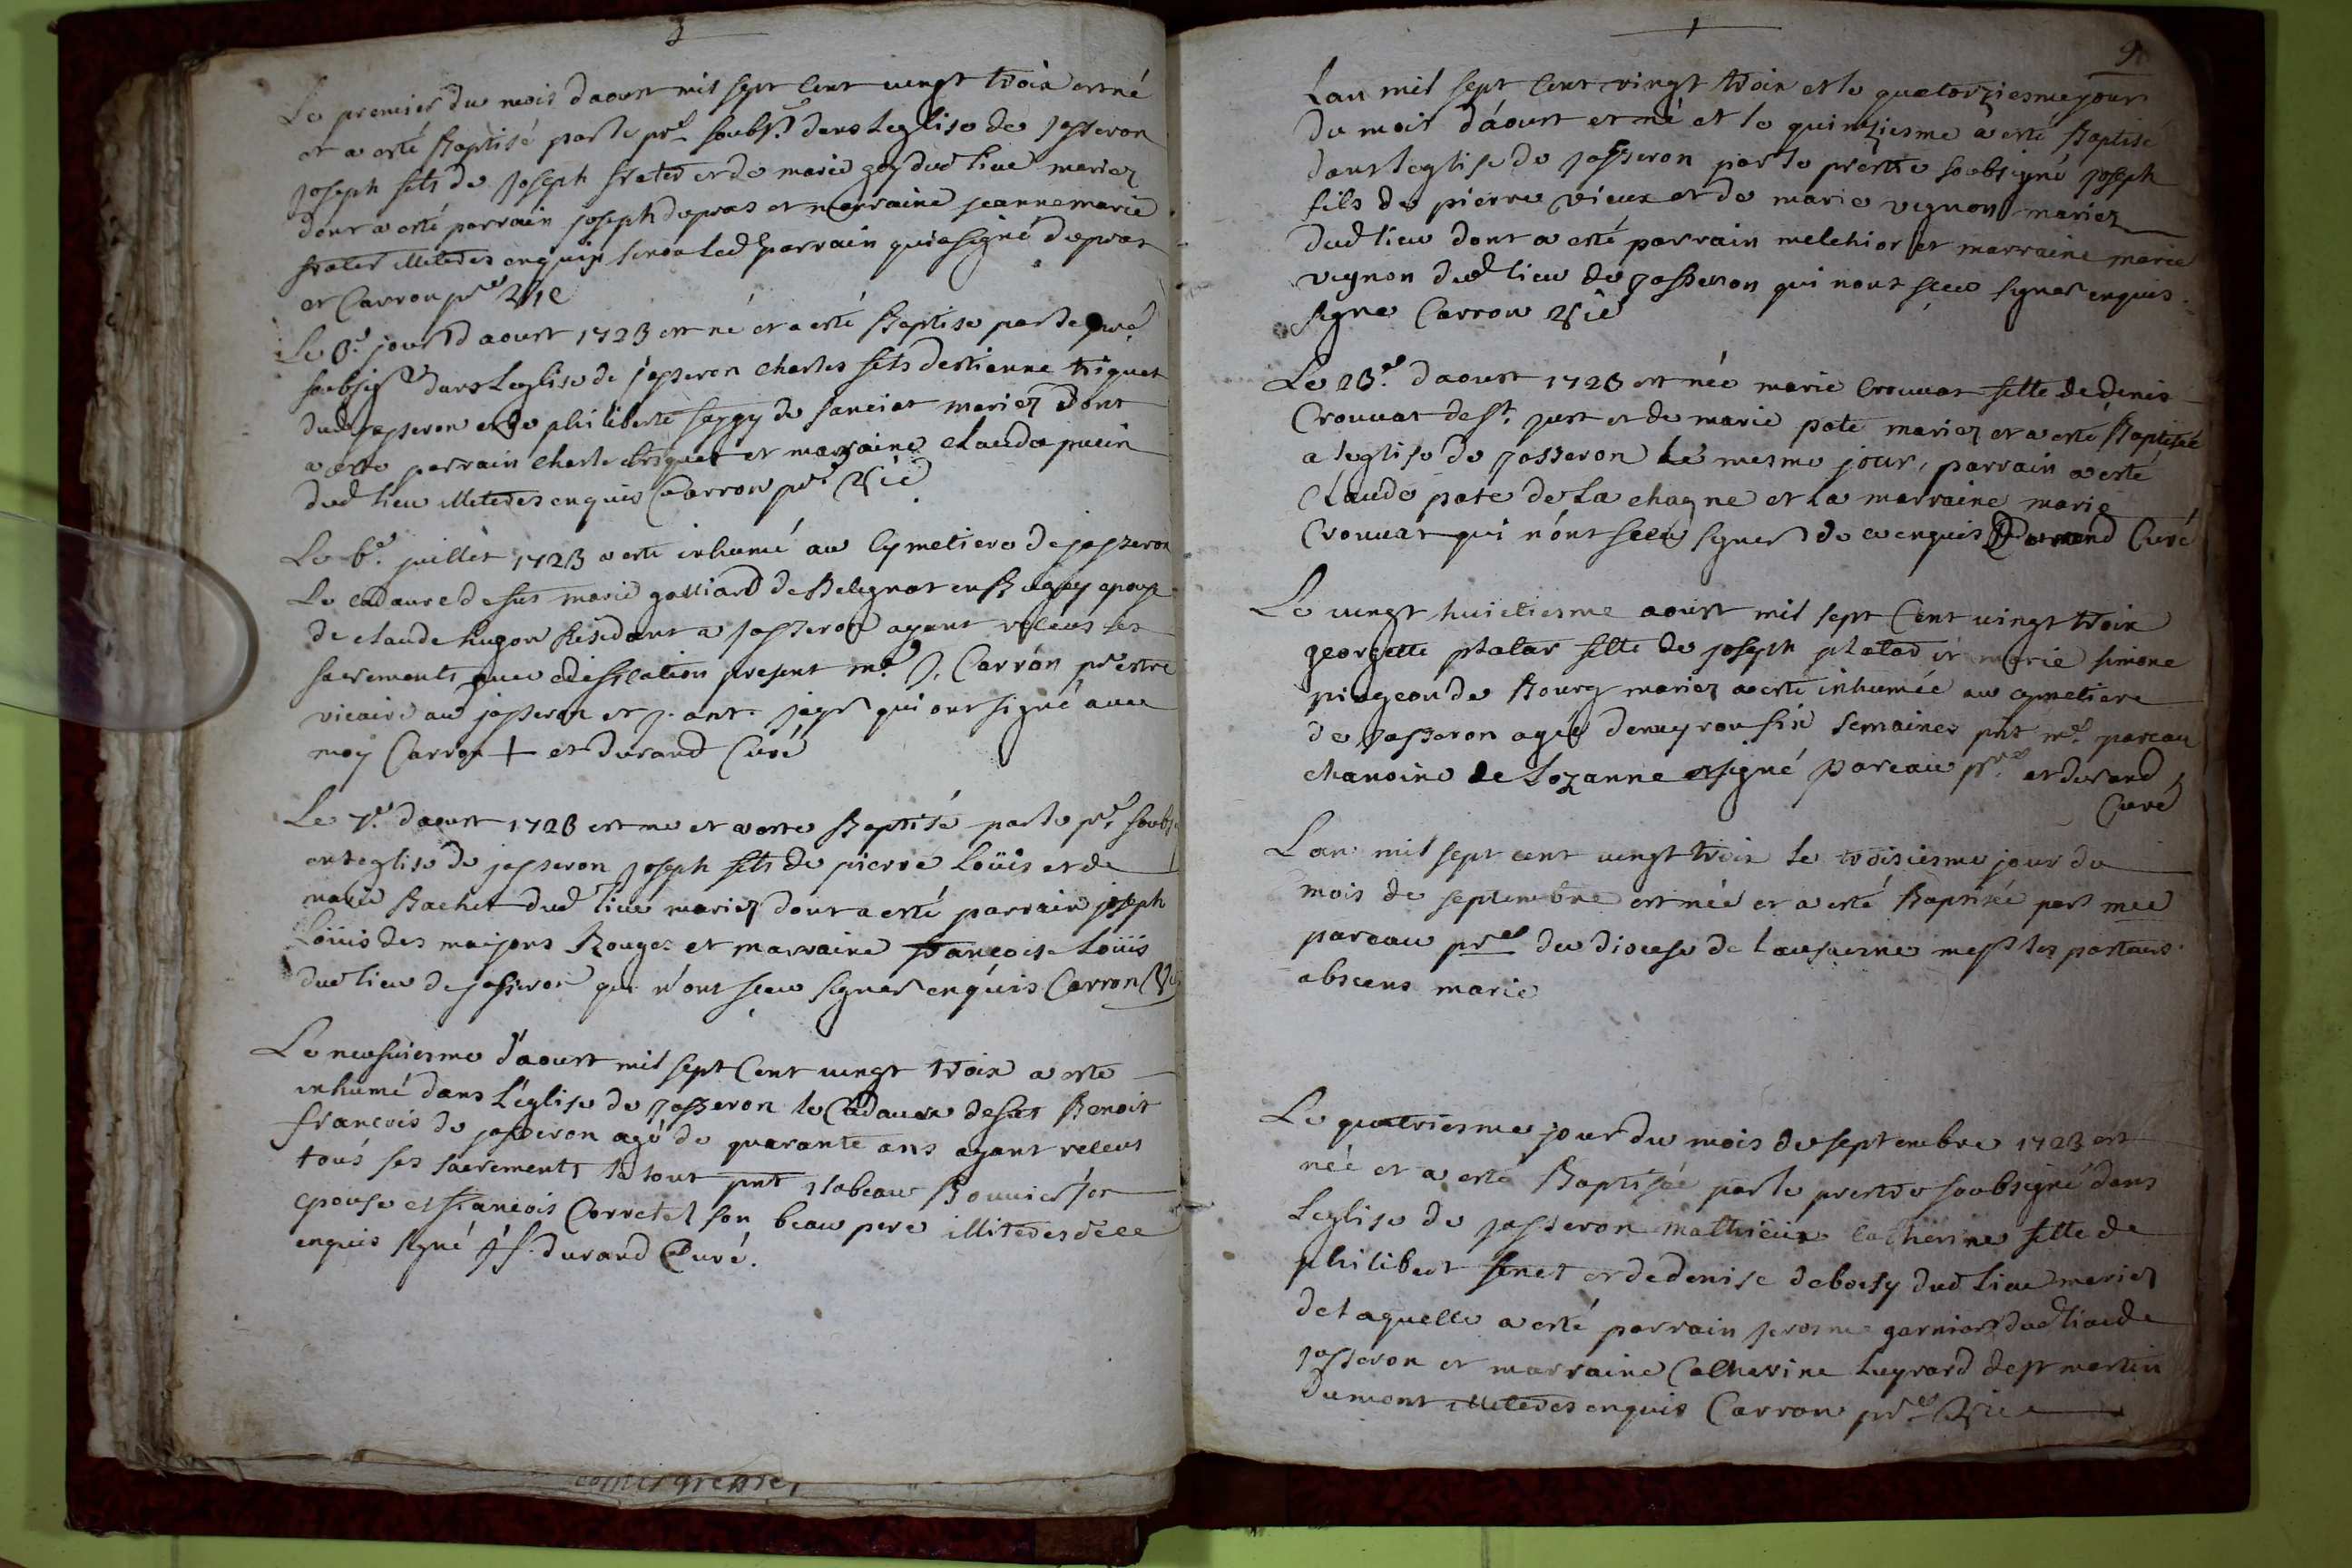 3
Le premier du mois daoust mil sept Cent vingt trois est né
et a esté Baptisé par le pre soubs. dans Leglise de Josseron
Joseph fils de Joseph frater et de marie goy dud lieu mariez
dont a esté parrain joseph depras et marraine jeanne marie
frater illiteres enquis sinon led parrain qui a signé depras
et Carron pre vic
Le 3e jour daoust 1723 est né et a esté Baptise par le pre
soubsig dans Leglise de josseron Charles fils destienne triquet
dud josseron et de philiberte seppy de sanciat mariez dont
a esté parrain Charle triquet et marraine Clauda puein
dud lieu illiteres enquis Carron pre vic
Le 6e juillet 1723 a esté inhumé au Cymetiere de josseron
Le cadavre de fut marie galliard de Belegnat en Bugey epouse
de claude hugon Residant a josseron ayant receus les
sacrements avec edification present mre J. Carron prestre
vicaire au josseron et j. ant. qui ont signé avec
moy Carron + et durand Curé
Le 7e daoust 1723 est ne et a esté Baptisé par le pre soubs
en leglise de josseron joseph fils de pierre Loüis et de
marie Bachet dud lieu mariez dont a esté parrain joseph
Loüis des maisons Rouges et marraine françoise Loüis
dud lieu de josseron qui n'ont sceu signer enquis Carron Vic
Le neufviesme d'aoust mil sept Cent vingt trois a esté
inhumé dans L'église de josseron le Cadavre de fut Benoit
francois de josseron agé de quarante ans ayant receut
tous ses sacrements le tout pnt isabeau Bouvier son
epouse et francois Corretel son beau pere illiteres de ce
enquis signé J f. durand Curé.
1
9
Lan mil sept Cent vingt trois et le quatorziesme jour
du mois d'aoust est né et le quinziesme a esté Baptisé
dans leglise de Josseron par le prestre soubsigné joseph
fils de pierre vieux et de marie vignon mariez
dud lieu dont a esté parrain melchior et marraine marie
vignon dud lieu de Josseron qui n'ont sceu signer enquis
signe Carron Vic
Le 23e daoust 1723 est née marie Crouvat fille de denis
Crouvat de st. just et de marie pate mariez et a esté Baptisée
a leglise de Josseron le mesme jour, parrain a esté
Claude pate de La chagne et la marraine marie
Crouvat qui n'ont sceu signer de ce enquis Durand Curé
Le vingt huictiesme aoust mil sept Cent vingt trois
georgette platar fille de joseph platar et marie simone
pingeon de Bourg mariez a esté inhumée au cymetiere
de josseron agée denvyron six semaines pnt mre pareau
chanoine de Lozanne et signé Pareau pre et durand
Curé
Lan mil sept cent vingt trois le troisiesme jour du
mois de septembre est née et a esté Baptisée par mre
pareau pre du diocese de lausanne messr les pasteurs
absens marie
Le quatriesme jour du mois de septembre 1723 est
née et a esté Baptisée par le prestre soubsigné dans
Leglise de josseron mathieue catherine fille de
philibert finet et de denise deboissy dud lieu mariez
de laquelle a esté parrain jerosme garnier dud lieu de
josseron et marraine Catherine Luyrard de st martin
dumont illiteres enquis Carron pre Vic